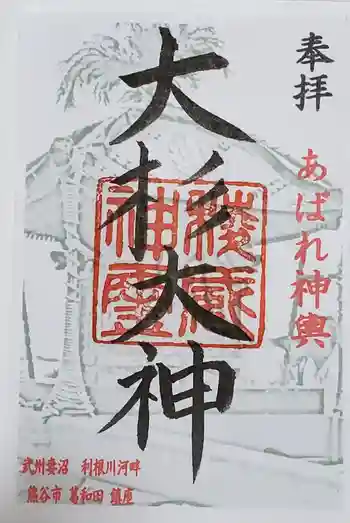 奉拝
あばれ神輿
大杉大神
稜威
神霊
武州妻沼 利根川河畔
熊谷市 葛和田 鎮座